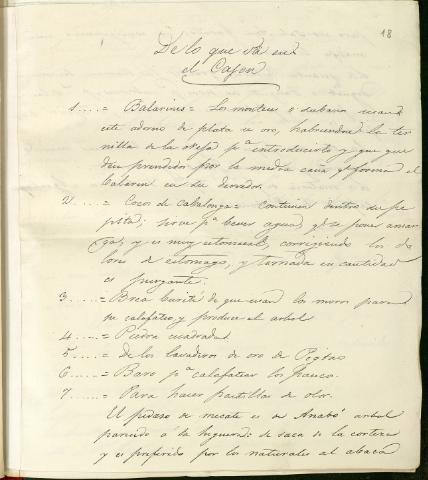 18
De lo que vá en
el Cajon
1....= Balarines = Los monteses o subanos usan
este adorno de plata u oro, habriendose la ter
nilla de la oreja pª introducirlo y que que
den prendidos por la media caña qe forma el
balarin en su derredor.
2....= Cocos de cabalonga = contienen dentro su pe
pita; sirve pª beber agua, qe se pone amar
ga, y es muy estomacal, corrigiendo los do
lores de estomago, y tomada en cantidad
es purgante.
3....= Brea de que usan los moros para
su calafateo y produce el arbol
4....= Piedra cuadrada
5....= De los lavaderos de oro de
6....= Baro pª calafatear los
7....= Para hacer pastillas de olor.
El pedaso de mecate es de Anabó arbol
parecido á la higuera: se saca de la corteza
y es preferido por los naturales al abacá